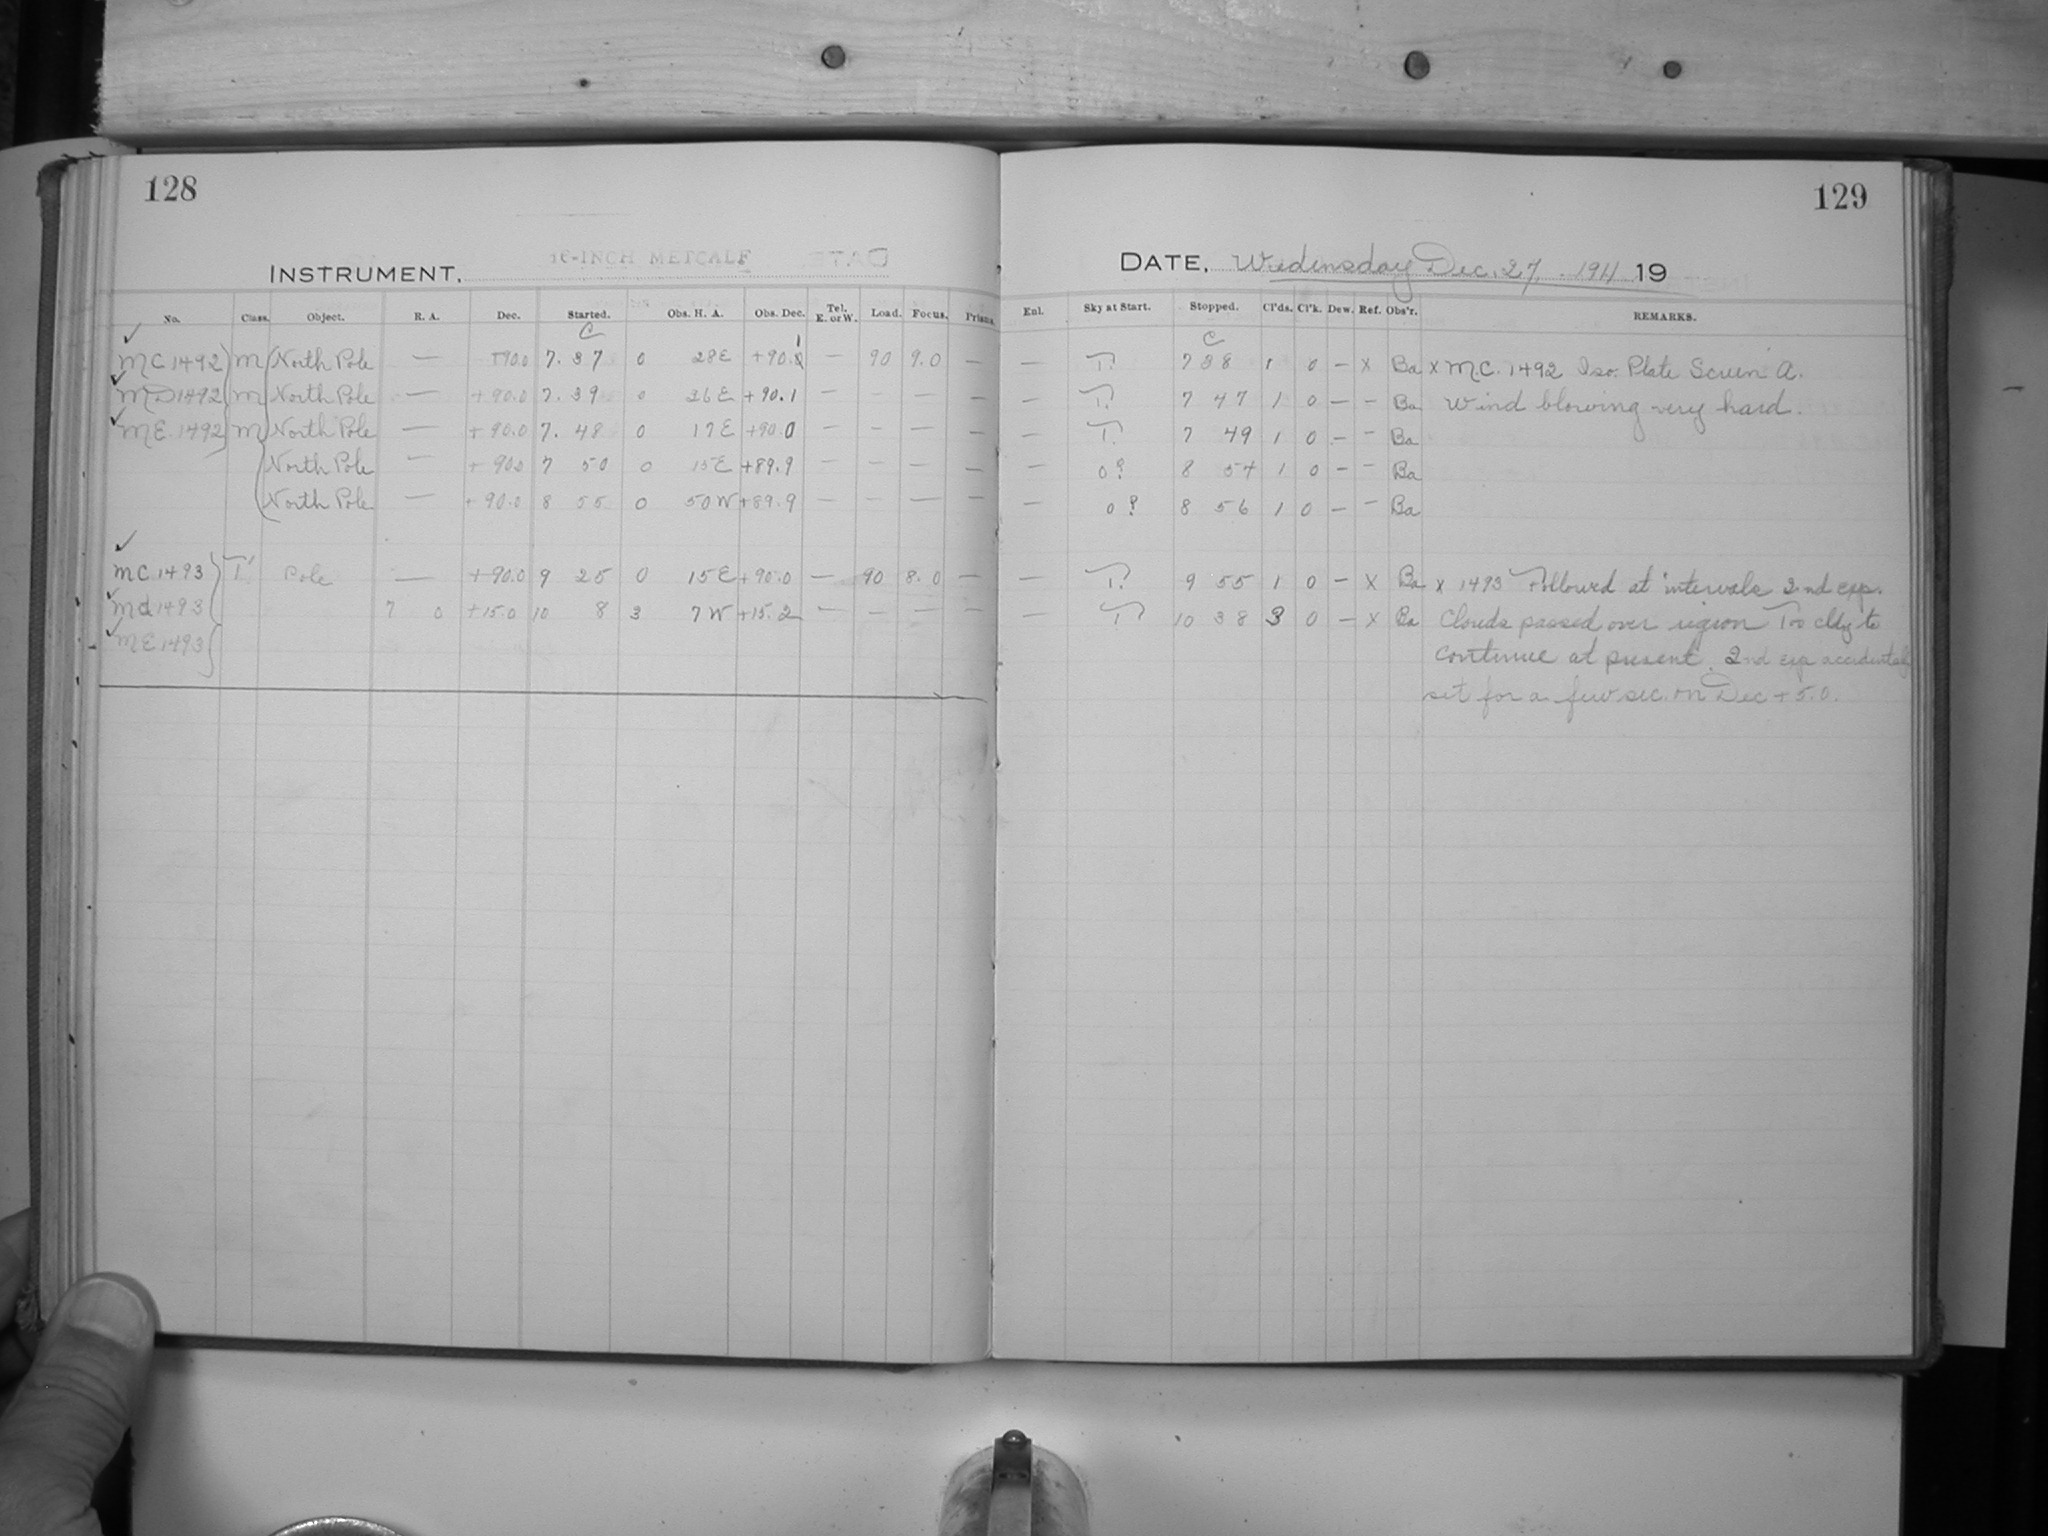 128
129
INSTRUMENT, 16-INCH METCALF
DATE, Wednesday Dec. 27. 1911 19
No. Class. Object. R. A. Dec. Started. Obs. H. A. Obs. Dec. Tel. E. or W. Load. Focus. Prisms. Enl. Sky at Start. Stopped. Cl'ds. Cl'k. Dew. Ref. Obs'r. REMARKS.
C C
MC 1492 M North Pole — +90.0 7. 37 0 28E +90.1 — 90 9.0 — — T? 7 38 1 0 — X Ba X M.C. 1492 Iso. Plate Screen A.
MD 1492 M North Pole — +90.0 7. 39 0 26E +90.1 — — — — — T? 7 47 1 0 — — Ba Wind blowing very hard.
ME. 1492 M North Pole — +90.0 7. 48 0 17E +90.0 — — — — — T? 7 49 1 0 — — Ba
North Pole — +90.0 7 50 0 15E +89.9 — — — — — 0? 8 54 1 0 — — Ba
North Pole — +90.0 8 55 0 50W +89.9 — — — — — 0? 8 56 1 0 — — Ba
MC 1493 T. Pole — +90.0 9 25 0 15E +90.0 — 90 8.0 — — T? 9 55 1 0 — X Ba X 1493 Followed at intervals 2nd exp.
Md 1493 7 0 +15.0 10 8 3 7W +15.2 — — — — — T? 10 38 3 0 — X Ba Clouds passed over region Too cldy to
ME 1493 continue at present. 2nd exp accidentally
set for a few sec. on Dec +5.0.